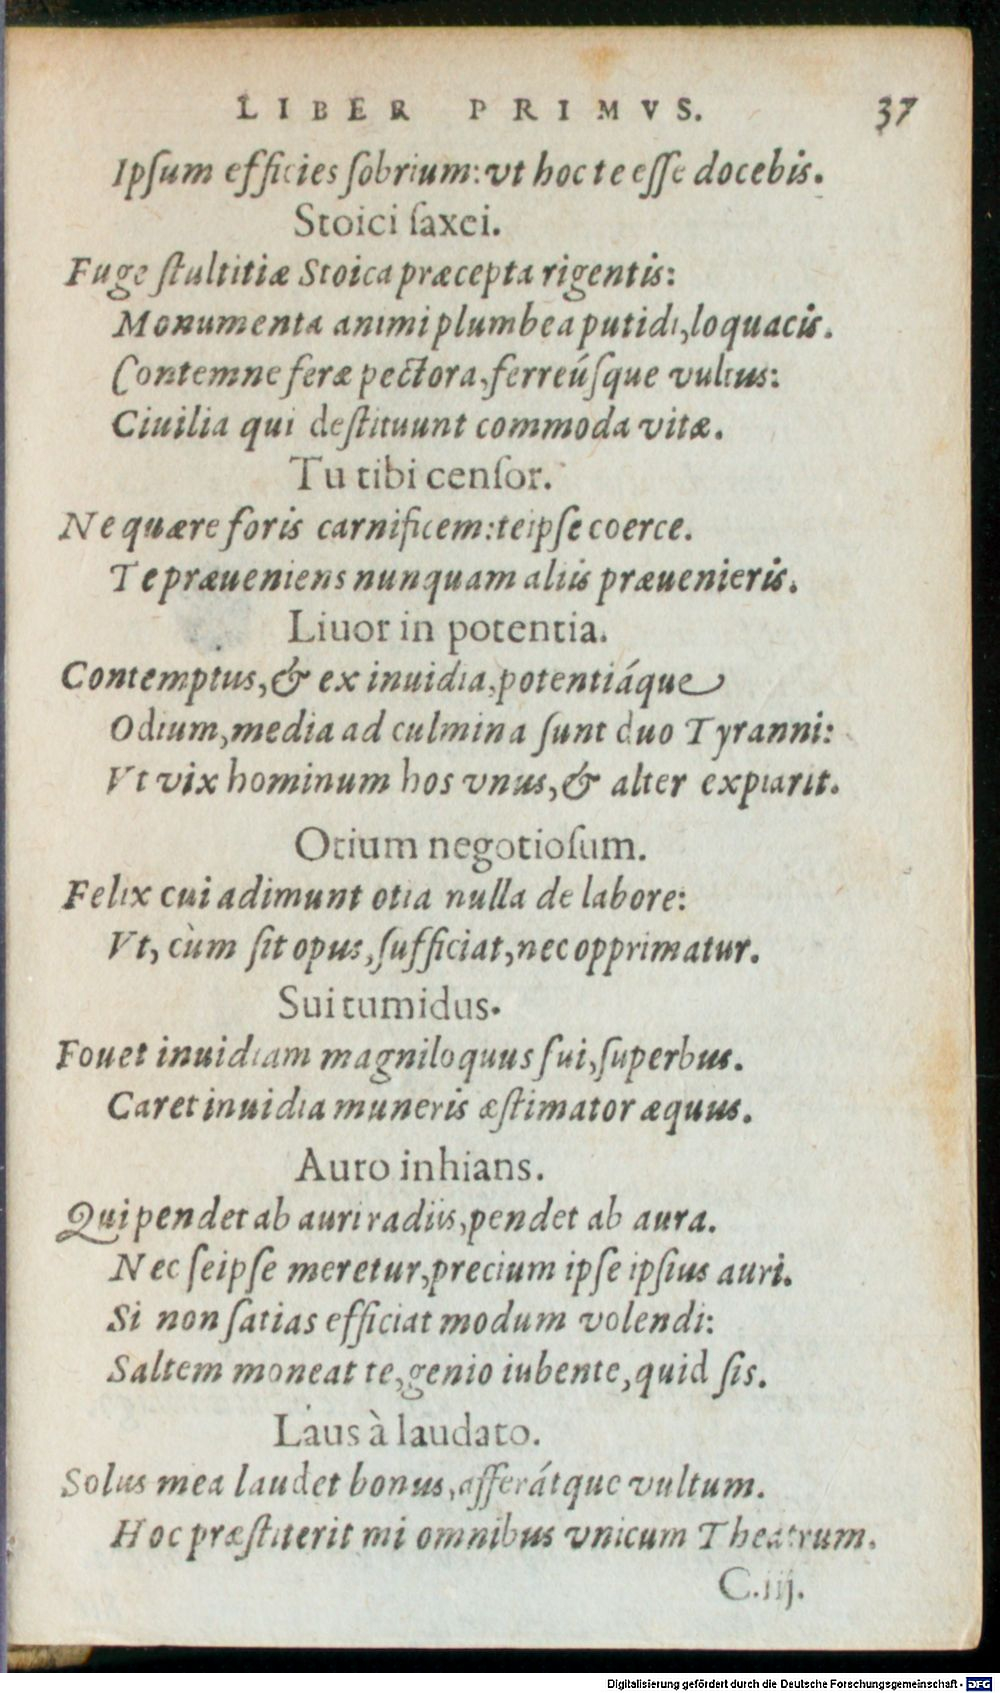 LIBER PRIMVS. 37
Ipſum efficies ſobrium: vt hoc te eſſe docebis.
Stoici ſaxei.
Fuge ſtultitiæ Stoica præcepta rigentis:
Monumenta animi plumbea putidi, loquacis.
Contemne feræ pectora, ferreúſque vultus:
Ciuilia qui deſtituunt commoda vitæ.
Tu tibi cenſor.
Ne quære foris carnificem: teipſe coerce.
Te præueniens nunquam aliis præuenieris.
Liuor in potentia.
Contemptus, & ex inuidia, potentiáque
Odium, media ad culmina ſunt duo Tyranni:
Vt vix hominum hos vnus, & alter expiarit.
Otium negotioſum.
Felix cui adimunt otia nulla de labore:
Vt, cùm ſit opus, ſufficiat, nec opprimatur.
Sui tumidus.
Fouet inuidiam magniloquus ſui, ſuperbus.
Caret inuidia muneris æſtimator æquus.
Auro inhians.
Qui pendet ab auri radiis, pendet ab aura.
Nec ſeipſe meretur, precium ipſe ipſius auri.
Si non ſatias efficiat modum volendi:
Saltem moneat te, genio iubente, quid ſis.
Laus à laudato.
Solus mea laudet bonus, afferátque vultum.
Hoc præſtiterit mi omnibus vnicum Theatrum.
C.iij.
Digitalisierung gefördert durch die Deutsche Forschungsgemeinschaft - DFG